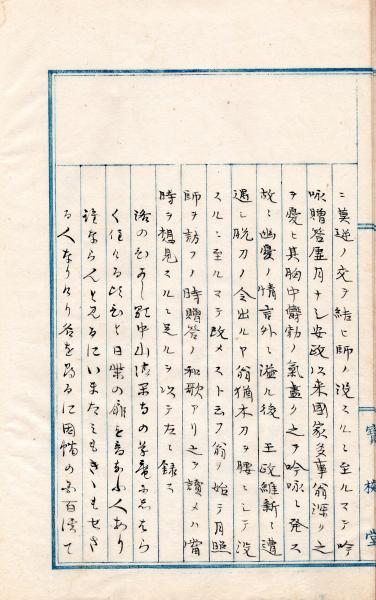 ニ莫逆ノ交ヲ結ヒ師ノ没スルニ至ルマテ吟
咏贈答虚月ナシ安政以来國家多事翁深ク之
ヲ憂ヒ其胸中欝勃ノ氣盡ク之ヲ吟咏ニ発ス
故ニ幽憂ノ情言外ニ溢ル後 王政維新ニ遭
遇シ脱刀ノ令出ルヤ翁猶木刀ヲ腰ニシテ没
スルニ至ルマテ改メスト云フ翁ノ始テ月照
師ヲ訪フノ時贈答ノ和歌アリ之ヲ讀メハ當
時ヲ想見スルニ足ルヲ以テ左ニ録ス
洛のひかし
く住ける比ひと日柴の扉を音なふ人あり
誰ならんと見るにいまたミもきゝもせさ
る人なりけり名を問るに因幡の国
寶 堂